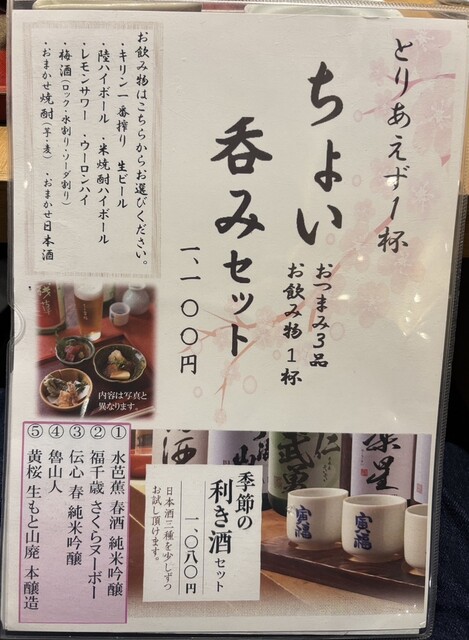 とりあえず1杯
ちょい
呑みセット
おつまみ3品
お飲み物1杯
一、一〇〇円
お飲み物はこちらからお選びください。
・キリン一番搾り 生ビール
・陸ハイボール ・米焼酎ハイボール
・レモンサワー ・ウーロンハイ
・梅酒(ロック・水割り・ソーダ割り)
・おまかせ焼酎(芋・麦) ・おまかせ日本酒
内容は写真と
異なります。
季節の
利き酒セット
一、〇八〇円
日本酒三種を少しずつ
お試し頂けます。
① 水芭蕉 春酒 純米吟醸
② 福千歳 さくらヌーボー
③ 伝心 春 純米吟醸
④ 魯山人
⑤ 黄桜 生もと山廃 本醸造
武勇
仁
寅福
寅福